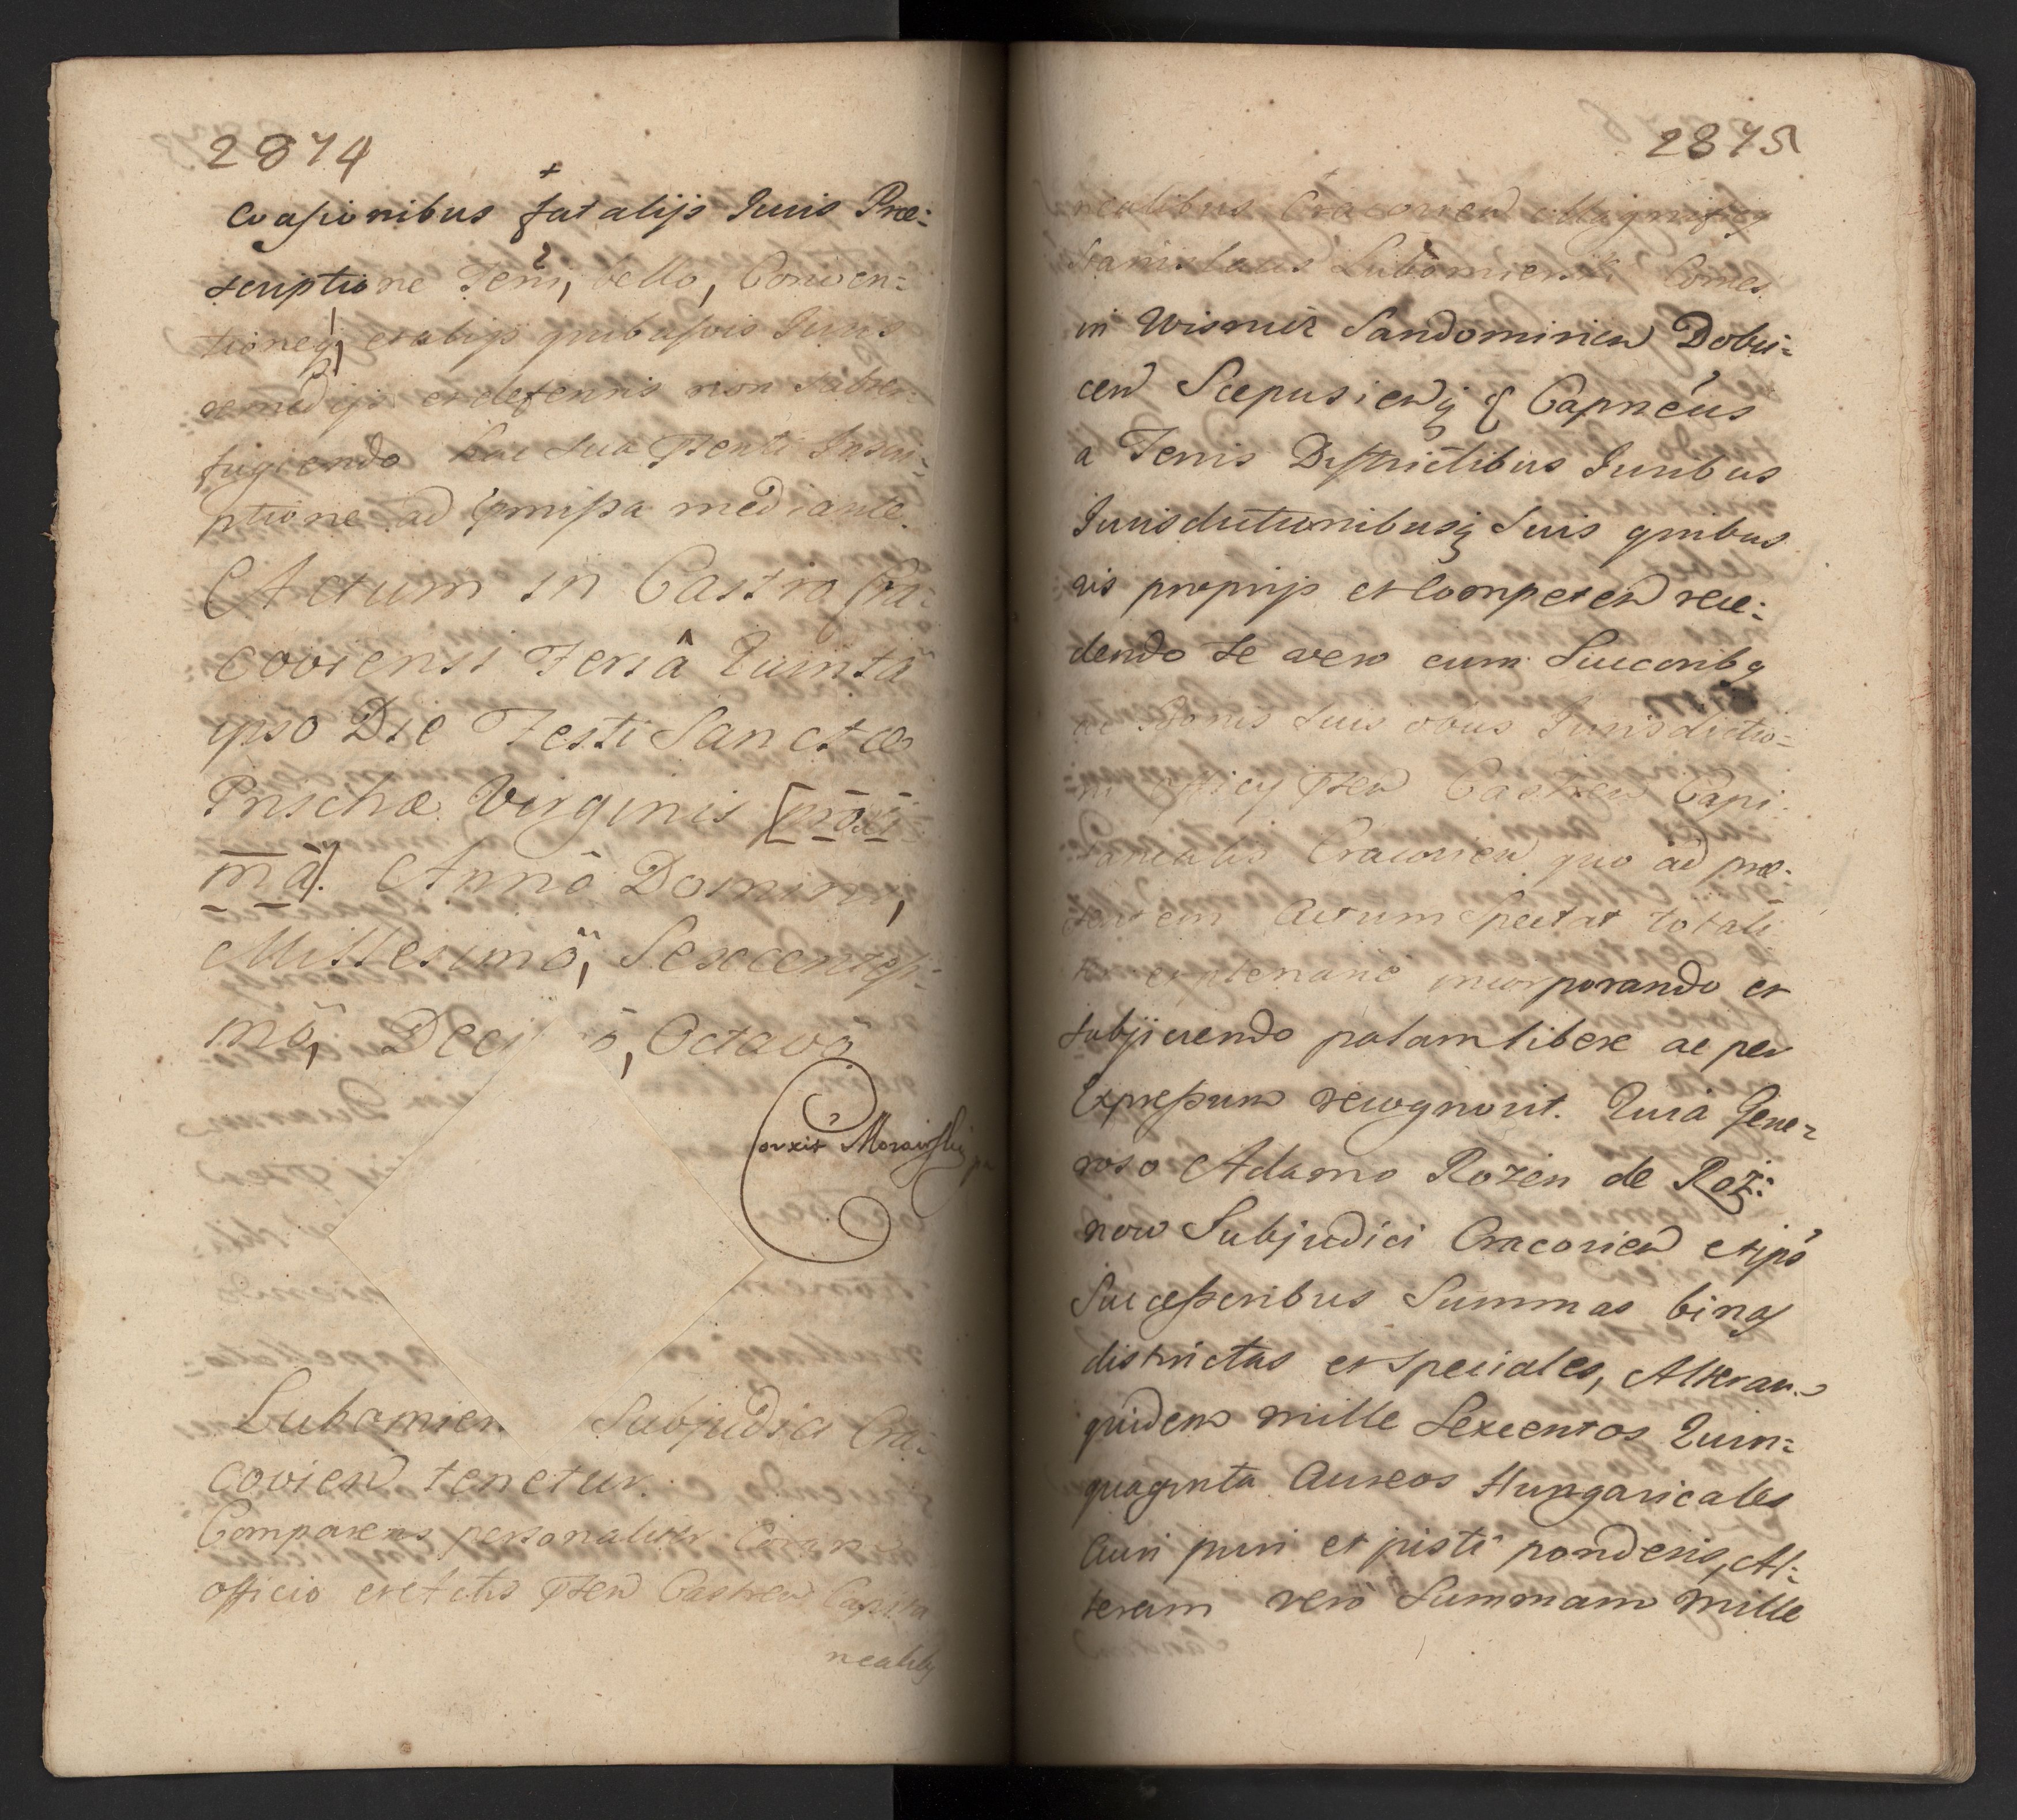 2874
evasionibus fatalijs Iuris Præ:
scriptione Terri, bello, Conven=
tioneq; et alijs quibusvis Iuris
remedijs et defensis non subter:
fugiendo hac sua Pñti Inscri=
ptione ad Pmissa mediante.
Actum in Castro Cra:
coviensi Feriâ Quintâ
ipso Die Festi Sanctæ
Priscæ Virginis [proxi=
mâ]. Annô Domini,
Millesimô, Sexcentesi:
mô, Deci ô, Octavô
Corrxit Morawski
Lubomier. Subjudici Cra:
covien tenetur.
Comparens personaliter Coram
officio et Actis Pñten Castren Capita
nealibq
2875
nealibus Cracovien Magnificq
Stanislaus Lubomierski Comes
in Wisnicz Sandomirien Dobci=
cen Scepusienq; & Capnéus
a Terris Districtibus Iuribus
Iurisdictionibusq; Suis quibus
vis proprijs et Competen rece:
dendo se vero cum Succoribq
ac Bonis suis obius Iurisdictio=
ni officij Pñten Castren Capi:
tanealis Cracovien quo ad præ:
sentem Actum Spectat totali
ter et plenarie incorporando et
subjiciendo palam libere ac per
Expressum recognovit. Quia Gene=
roso Adamo Rozen de Roż:
now Subjudici Cracovien et ipō
Successoribus Summas binas
districtas et speciales, Alteram
quidem mille Sexcentos Quin=
quaginta Aureos Hungaricales
Auri puri et justi ponderis, Al:
teram verò Summam Mille